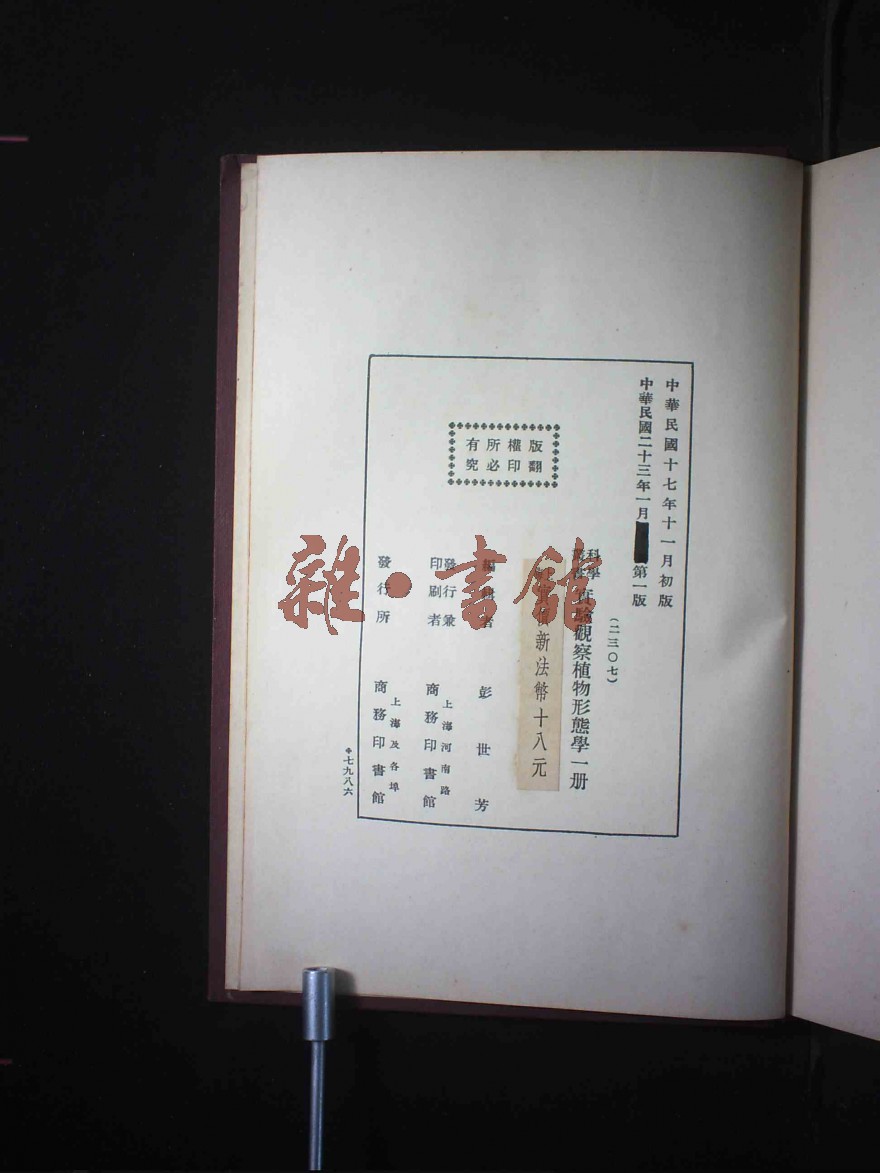 中華民國十七年十一月初版
中華民國二十三年一月
第一版
(二三〇七)
科學
實驗觀察植物形態學一册
新法幣十八元
版權所有
翻印必究
者 彭世芳
發行兼
印刷者
上海河南路
商務印書館
發行所
上海及各埠
商務印書館
七九八六
雜·書館